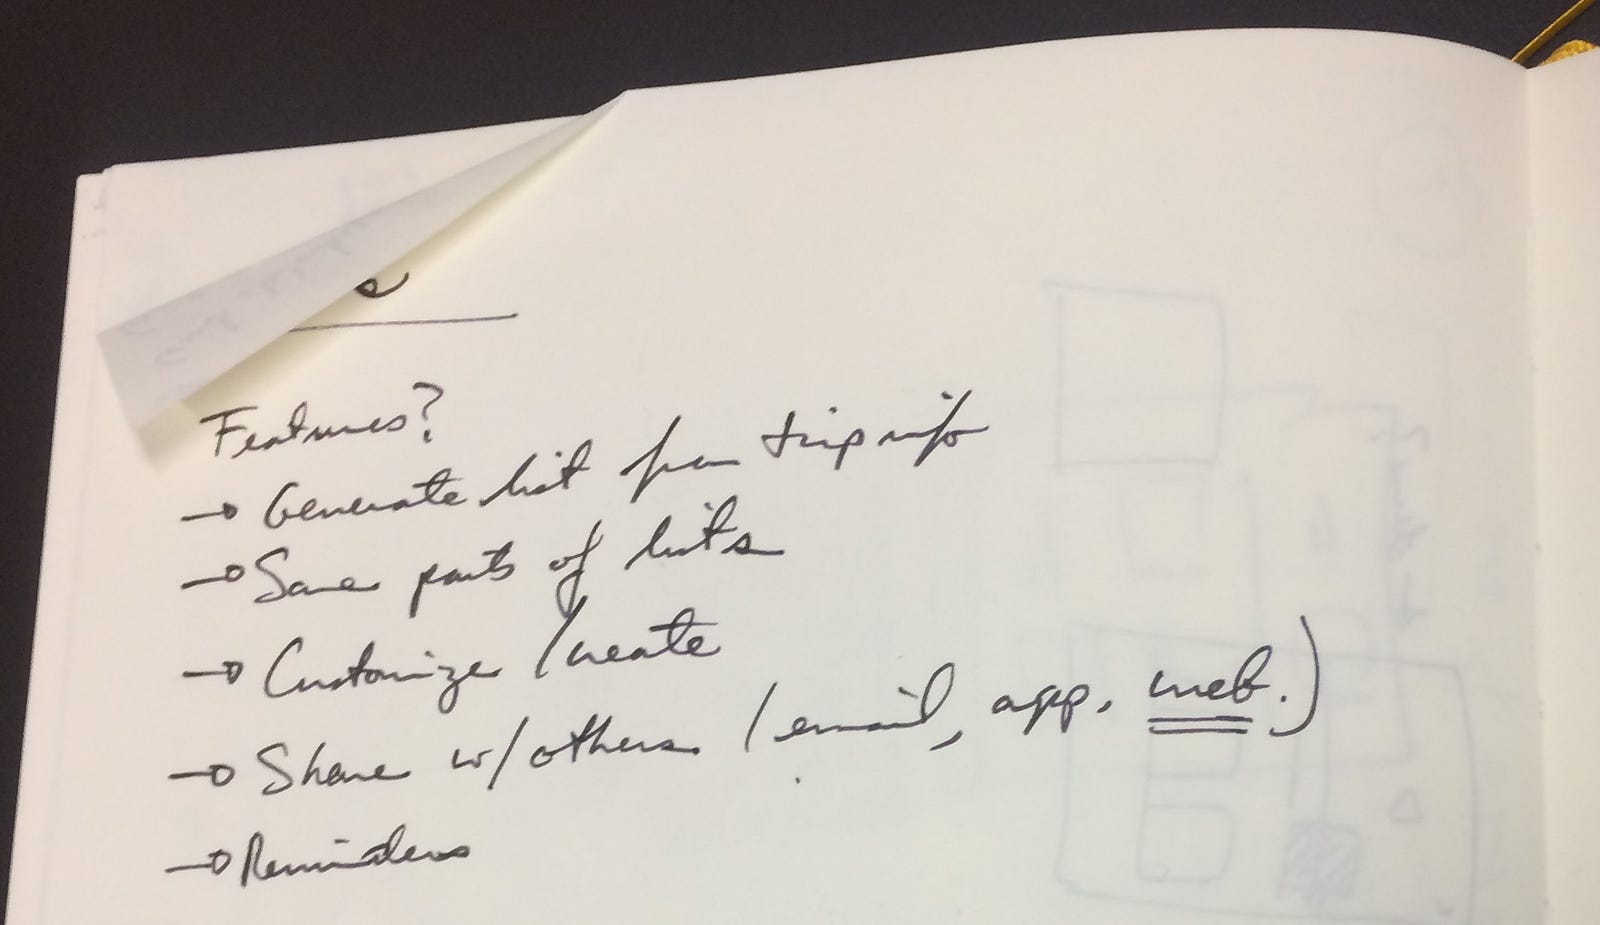 e
Features?
→ Generate list from trip info
→ Save parts of lists
→ Customize / create
→ Share w/others (email, app, web.)
→ Reminders